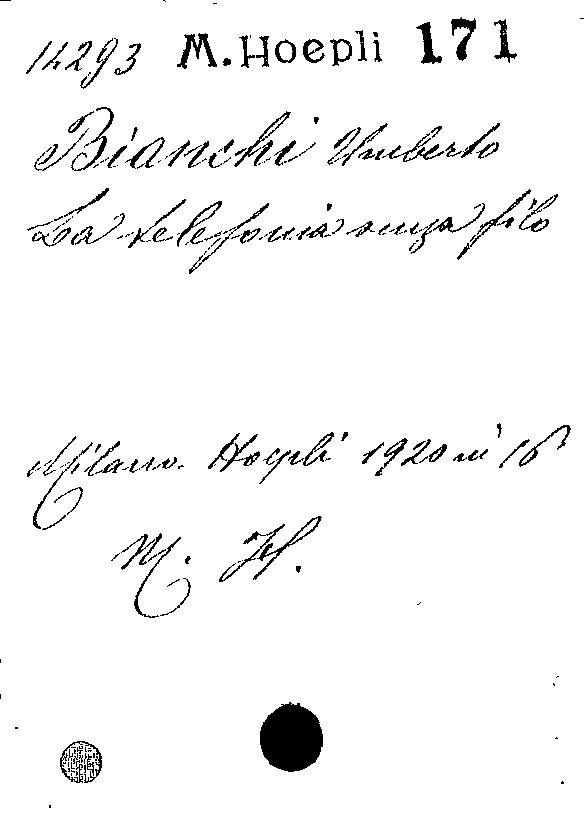 14293 M. Hoepli 171
Bianchi Umberto
La telefonia senza filo
Milano. Hoepli 1920 in 16°
M. H.